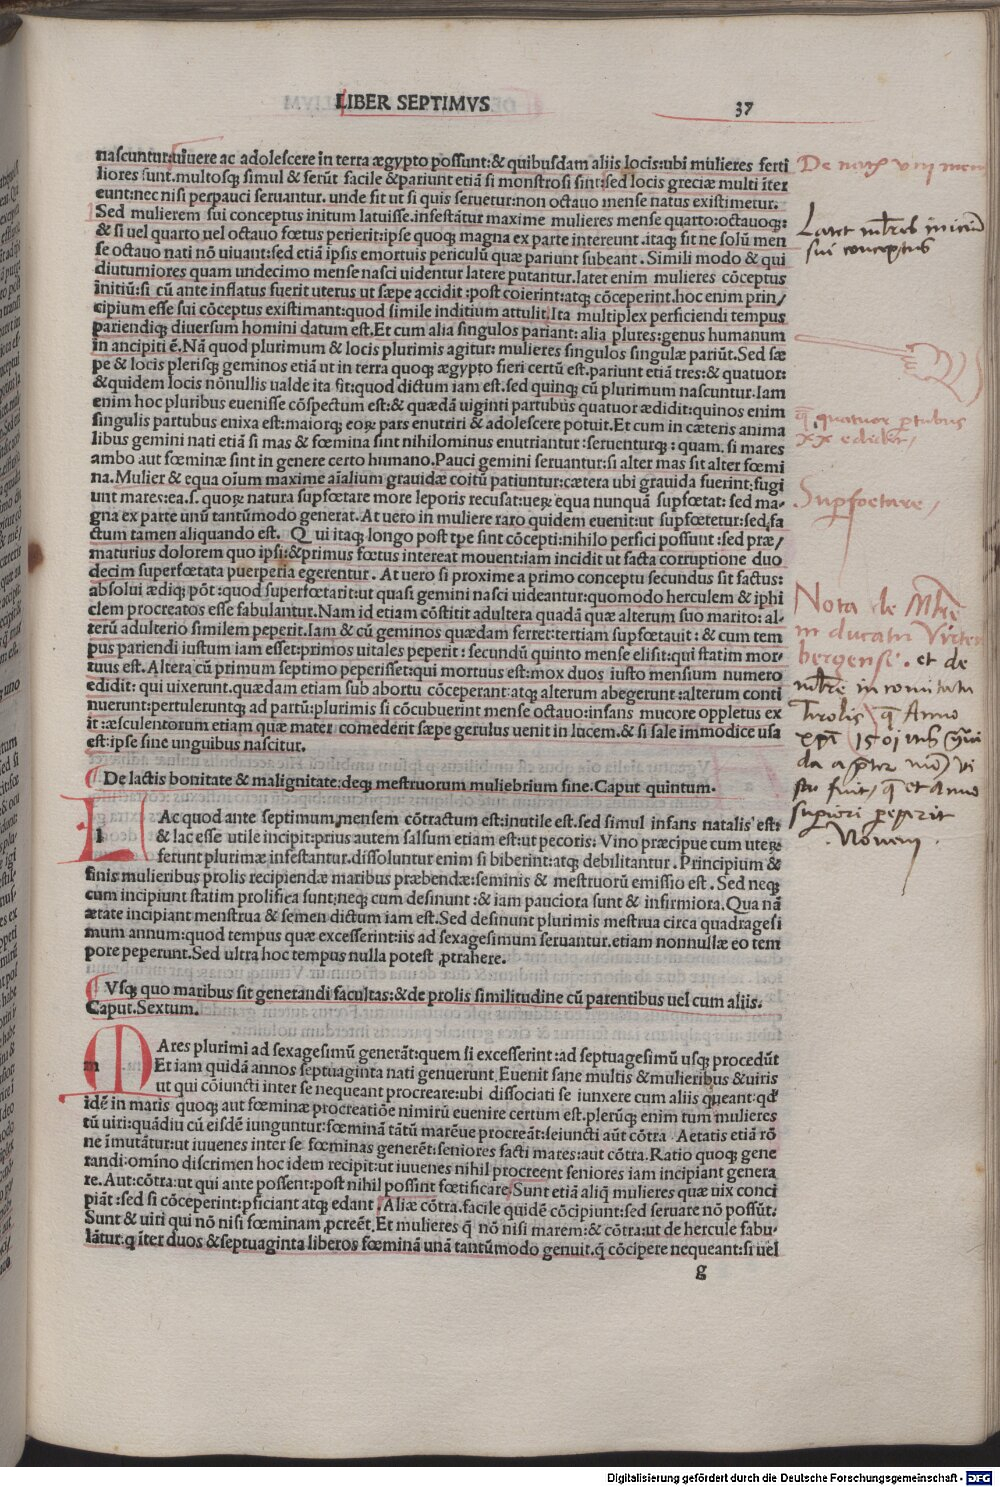 LIBER SEPTIMVS
37
nascuntur:uiuere ac adolescere in terra ægypto possunt:& quibusdam aliis locis:ubi mulieres ferti
liores sunt.multosqꝫ simul & ferūt facile & pariunt etiā si monstrosi sint:sed locis greciæ multi īter
eunt:nec nisi perpauci seruantur. unde fit ut si quis seruetur:non octauo mense natus existimetur.
Sed mulierem sui conceptus initum latuisse.infestātur maxime mulieres mense quarto:octauoqꝫ:
& si uel quarto uel octauo fœtus perierit:ipse quoqꝫ magna ex parte intereunt .itaqꝫ fit ne solū men
se octauo nati nō uiuant:sed etiā ipsis emortuis periculū quæ pariunt subeant . Simili modo & qui
diuturniores quam undecimo mense nasci uidentur latere putantur.latet enim mulieres cōceptus
initiū:si cū ante inflatus fuerit uterus ut sæpe accidit :post coierint:atqꝫ cōceperint.hoc enim prin/
cipium esse sui cōceptus existimant:quod simile inditium attulit.Ita multiplex perficiendi tempus
pariendiqꝫ diuersum homini datum est.Et cum alia singulos pariant: alia plures:genus humanum
in ancipiti ē.Nā quod plurimum & locis plurimis agitur: mulieres singulos singulæ pariūt.Sed sæ
pe & locis plerisqꝫ geminos etiā ut in terra quoqꝫ ægypto fieri certū est.pariunt etiā tres:& quatuor:
& quidem locis nōnullis ualde ita fit:quod dictum iam est.sed quinqꝫ cū plurimum nascuntur.Iam
enim hoc pluribus euenisse cōspectum est:& quædā uiginti partubus quatuor ædidit:quinos enim
singulis partubus enixa est:maiorqꝫ eoꝝ pars enutriri & adolescere potuit.Et cum in cæteris anima
libus gemini nati etiā si mas & fœmina sint nihilominus enutriantur :seruenturqꝫ : quam. si mares
ambo aut fœminæ sint in genere certo humano.Pauci gemini seruantur:si alter mas sit alter fœmi
na.Mulier & equa oīum maxime aīalium grauidæ coitū patiuntur:cætera ubi grauida fuerint:fugi
unt mares:ea.s. quoꝝ natura supfœtare more leporis recusat:ueꝝ equa nunquā supfœtat: sed ma-
gna ex parte unū tantūmodo generat. At uero in muliere raro quidem euenit:ut supfœtetur:sed fa
ctum tamen aliquando est. Q ui itaqꝫ longo post tpe sint cōcepti:nihilo perfici possunt :sed præ/
maturius dolorem quo ipsi:&primus fœtus intereat mouent:iam incidit ut facta corruptione duo
decim superfœtata puerperia egerentur . At uero si proxime a primo conceptu secundus sit factus:
absolui ædiqꝫ pōt :quod superfœtarit:ut quasi gemini nasci uideantur:quomodo herculem & iphi
clem procreatos esse fabulantur.Nam id etiam cōstitit adultera quadā quæ alterum suo marito: al-
terū adulterio similem peperit.Iam & cū geminos quædam ferret:tertiam supfœtauit : & cum tem
pus pariendi iustum iam esset:primos uitales peperit : secundū quinto mense elisit:qui statim mor-
tuus est. Altera cū primum septimo peperisset:qui mortuus est:mox duos iusto mensium numero
edidit: qui uixerunt.quædam etiam sub abortu cōceperant:atqꝫ alterum abegerunt :alterum conti
nuerunt:pertuleruntqꝫ ad partū:plurimis si cōcubuerint mense octauo:infans mucore oppletus ex
it :æsculentorum etiam quæ mater comederit sæpe gerulus uenit in lucem.& si sale immodice usa
est:ipse sine unguibus nascitur.
De lactis bonitate & malignitate:deqꝫ mestruorum muliebrium fine.Caput quintum.
l
LAc quod ante septimum mensem cōtractum est:inutile est.sed simul infans natalis est:
& lac esse utile incipit:prius autem salsum etiam est:ut pecoris: Vino præcipue cum uteꝝ
ferunt plurimæ infestantur.dissoluntur enim si biberint:atqꝫ debilitantur . Principium &
finis mulieribus prolis recipiendæ maribus præbendæ:seminis & mestruorū emissio est . Sed neqꝫ
cum incipiunt statim prolifica sunt:neqꝫ cum desinunt :& iam pauciora sunt & infirmiora. Qua nā
ætate incipiant menstrua & semen dictum iam est.Sed desinunt plurimis mestrua circa quadragesi
mum annum:quod tempus quæ excesserint:iis ad sexagesimum seruantur.etiam nonnullæ eo tem
pore peperunt.Sed ultra hoc tempus nulla potest ꝓtrahere.
Vsqꝫ quo maribus sit generandi facultas:& de prolis similitudine cū parentibus uel cum aliis.
Caput.Sextum.
m
MAres plurimi ad sexagesimū generāt:quem si excesserint :ad septuagesimū usqꝫ procedūt
Et iam quidā annos septuaginta nati genuerunt. Euenit sane multis & mulieribus & uiris
ut qui cōiuncti inter se nequeant procreare:ubi dissociati se iunxere cum aliis queant:qd'
idē in maris quoqꝫ aut fœminæ procreatiōe nimirū euenire certum est.plerūqꝫ enim tum mulieres
tū uiri:quādiu cū eisdē iunguntur:fœminā tātū marēue procreāt:seiuncti aūt cōtra . Aetatis etiā rō
ne īmutātur:ut iuuenes inter se fœminas generēt:seniores facti mares:aut cōtra. Ratio quoqꝫ gene
randi omīno discrimen hoc idem recipit:ut iuuenes nihil procreent seniores iam incipiant genera
re. Aut:cōtra:ut qui ante possent:post nihil possint fœtificare. Sunt etiā aliq̄ mulieres quæ uix conci
piāt :sed si cōceperint:pficiant atqꝫ edant . Aliæ cōtra.facile quidē cōcipiunt:sed seruare nō possūt.
Sunt & uiri qui nō nisi fœminam ꝓcreēt.Et mulieres q̄ nō nisi marem:& cōtra:ut de hercule fabu-
lātur.q īter duos & septuaginta liberos fœminā unā tantūmodo genuit.q̄ cōcipere nequeant:si uel
g
De nat͛ VIII men
Latet mlr̄es iniciū
sui conceptus
q̄ quatuor ꝑtubus
XX edidit
Supfoetare
Nota de Mlr̄e
in ducatu Virten
bergensi . et de
mlr̄e in comitatu
Tirolis q̄ Anno
xpī 1501
q̄ et Anno
superiori peperit
. Novem .
Digitalisierung gefördert durch die Deutsche Forschungsgemeinschaft - DFG